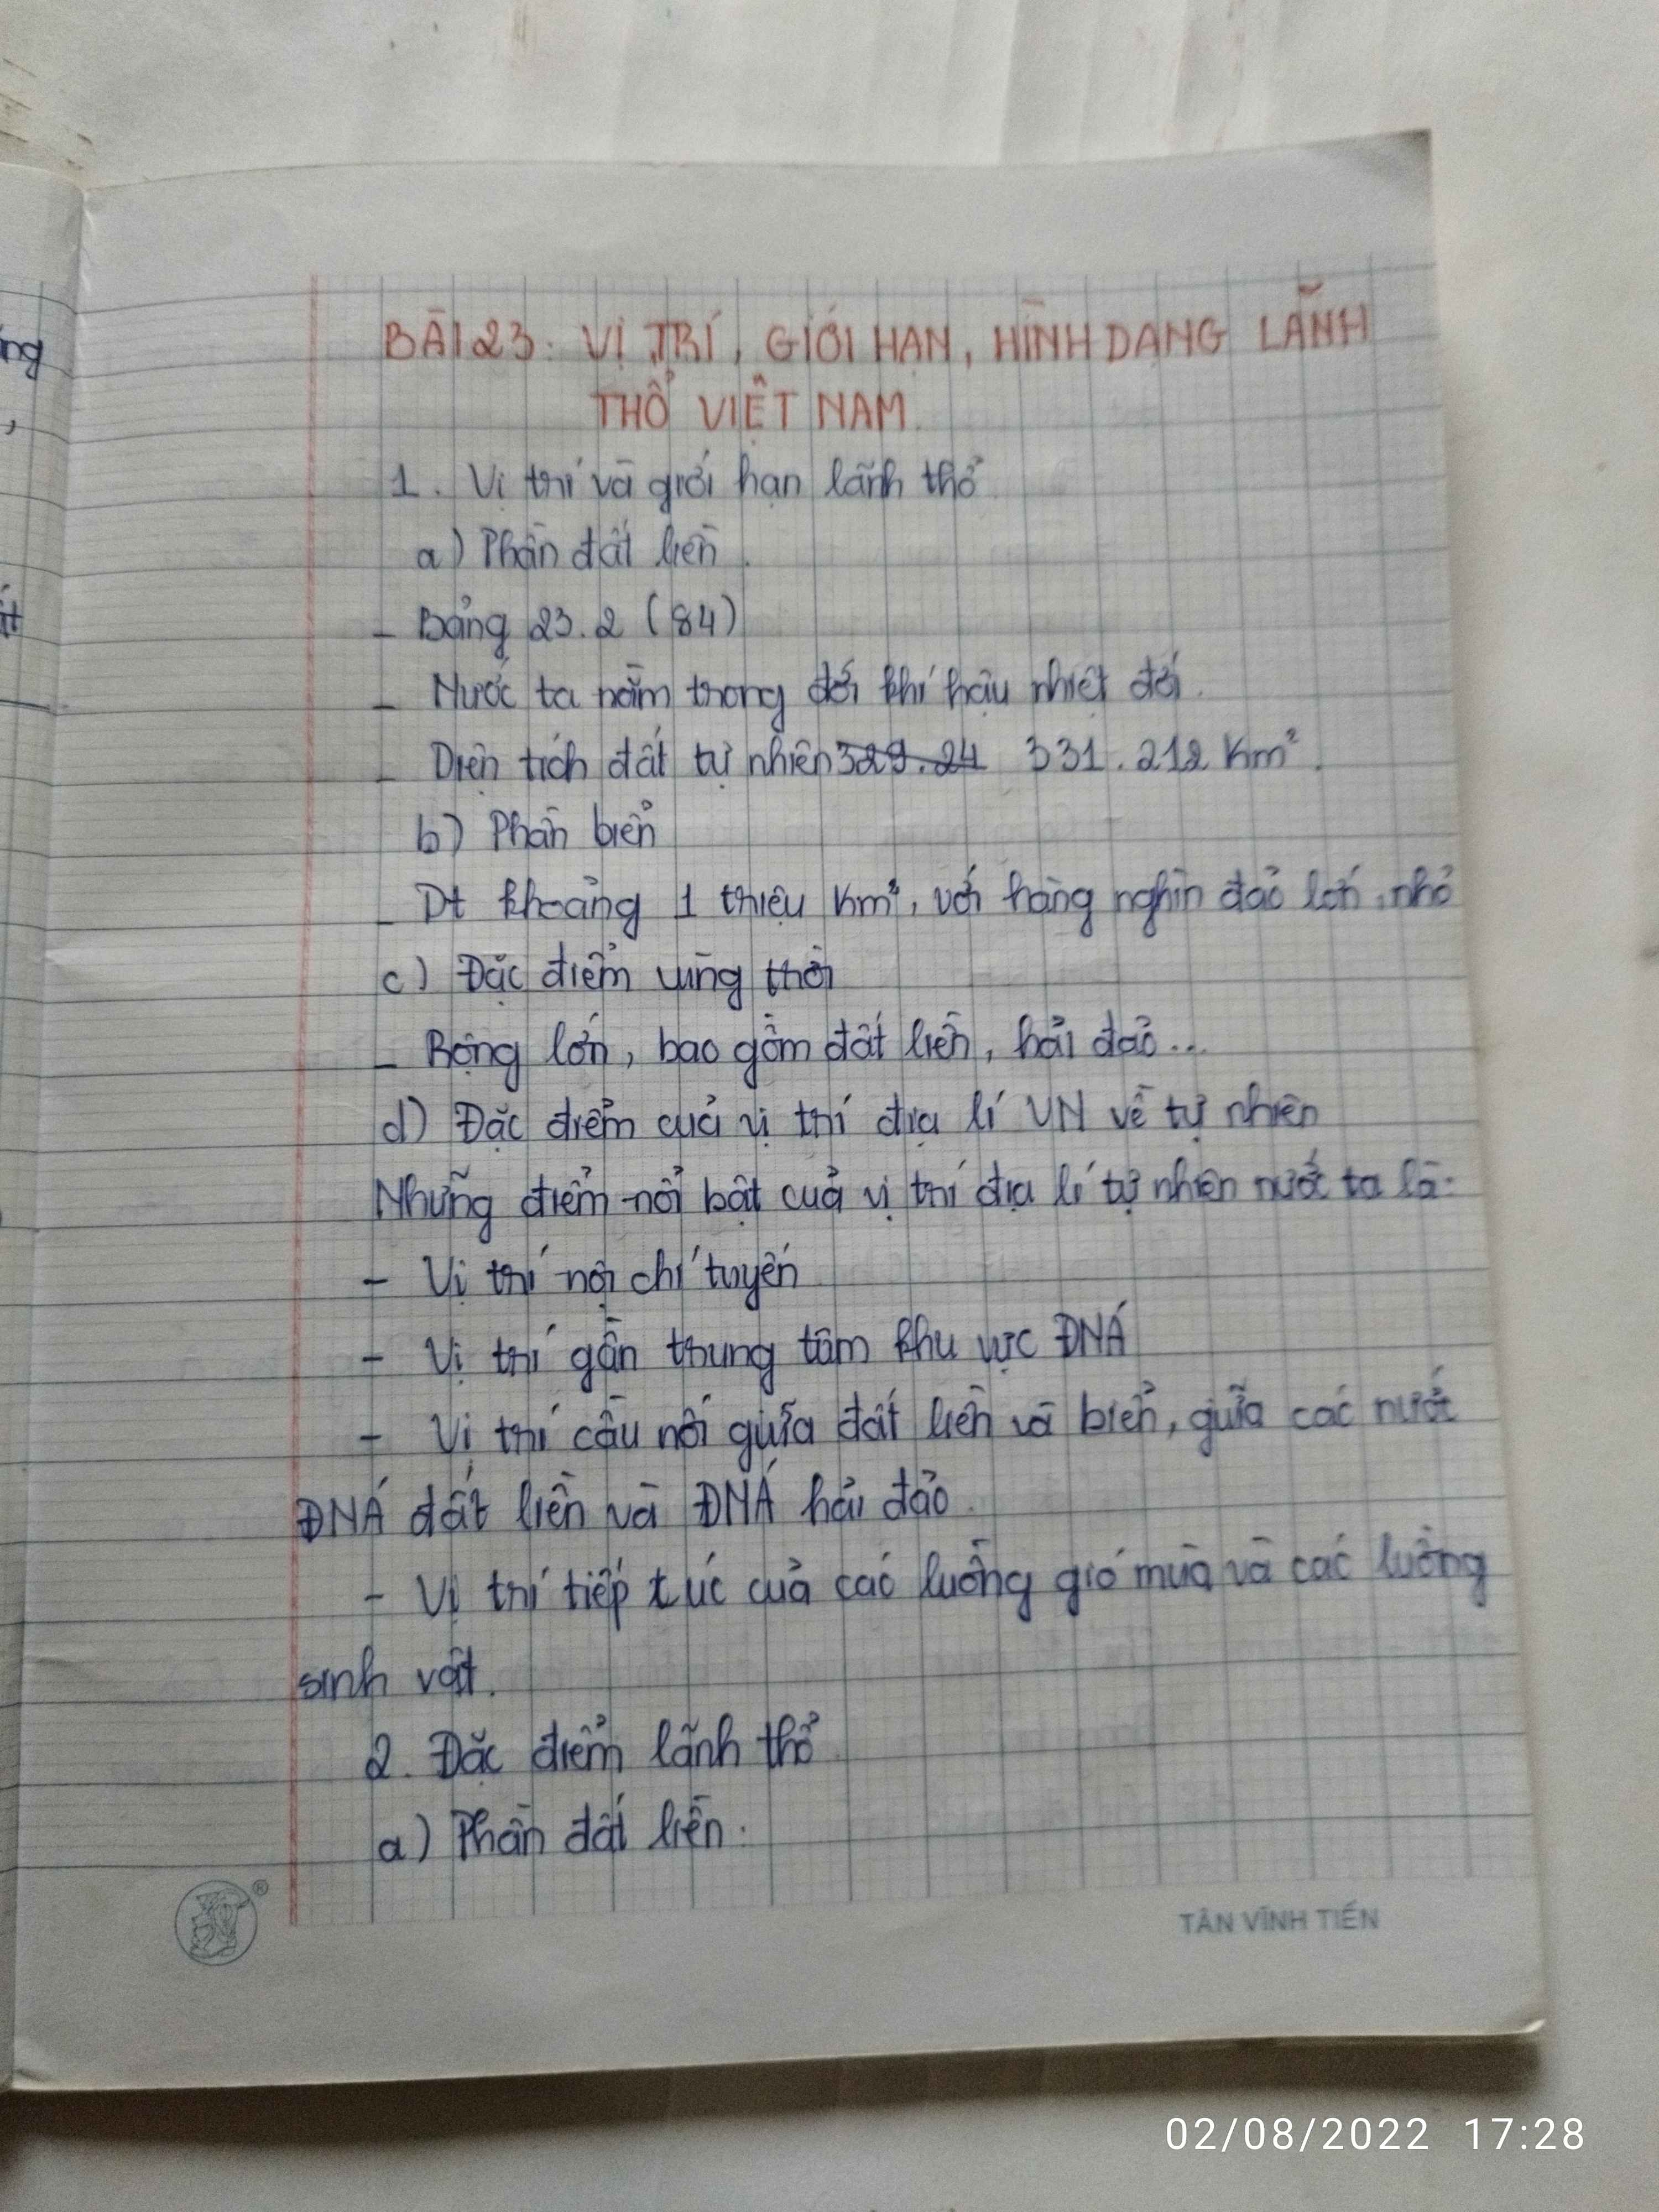 BÀI 23: VỊ TRÍ, GIỚI HẠN, HÌNH DẠNG LÃNH
THỔ VIỆT NAM.
1. Vị trí và giới hạn lãnh thổ
a) Phần đất liền.
- Bảng 23.2 (84)
- Nước ta nằm trong đới khí hậu nhiệt đới.
- Diện tích đất tự nhiên 329.24 331.212 Km².
b) Phần biển
- Dt khoảng 1 triệu Km², với hàng nghìn đảo lớn, nhỏ
c) Đặc điểm vùng trời
- Rộng lớn, bao gồm đất liền, hải đảo...
d) Đặc điểm của vị trí địa lí VN về tự nhiên
Những điểm nổi bật của vị trí địa lí tự nhiên nước ta là:
- Vị trí nội chí tuyến
- Vị trí gần trung tâm khu vực ĐNÁ
- Vị trí cầu nối giữa đất liền và biển, giữa các nước
ĐNÁ đất liền và ĐNÁ hải đảo.
- Vị trí tiếp túc của các luồng gió mùa và các luồng
sinh vật.
2. Đặc điểm lãnh thổ
a) Phần đất liền.
®
TÂN VĨNH TIẾN
02/08/2022 17:28